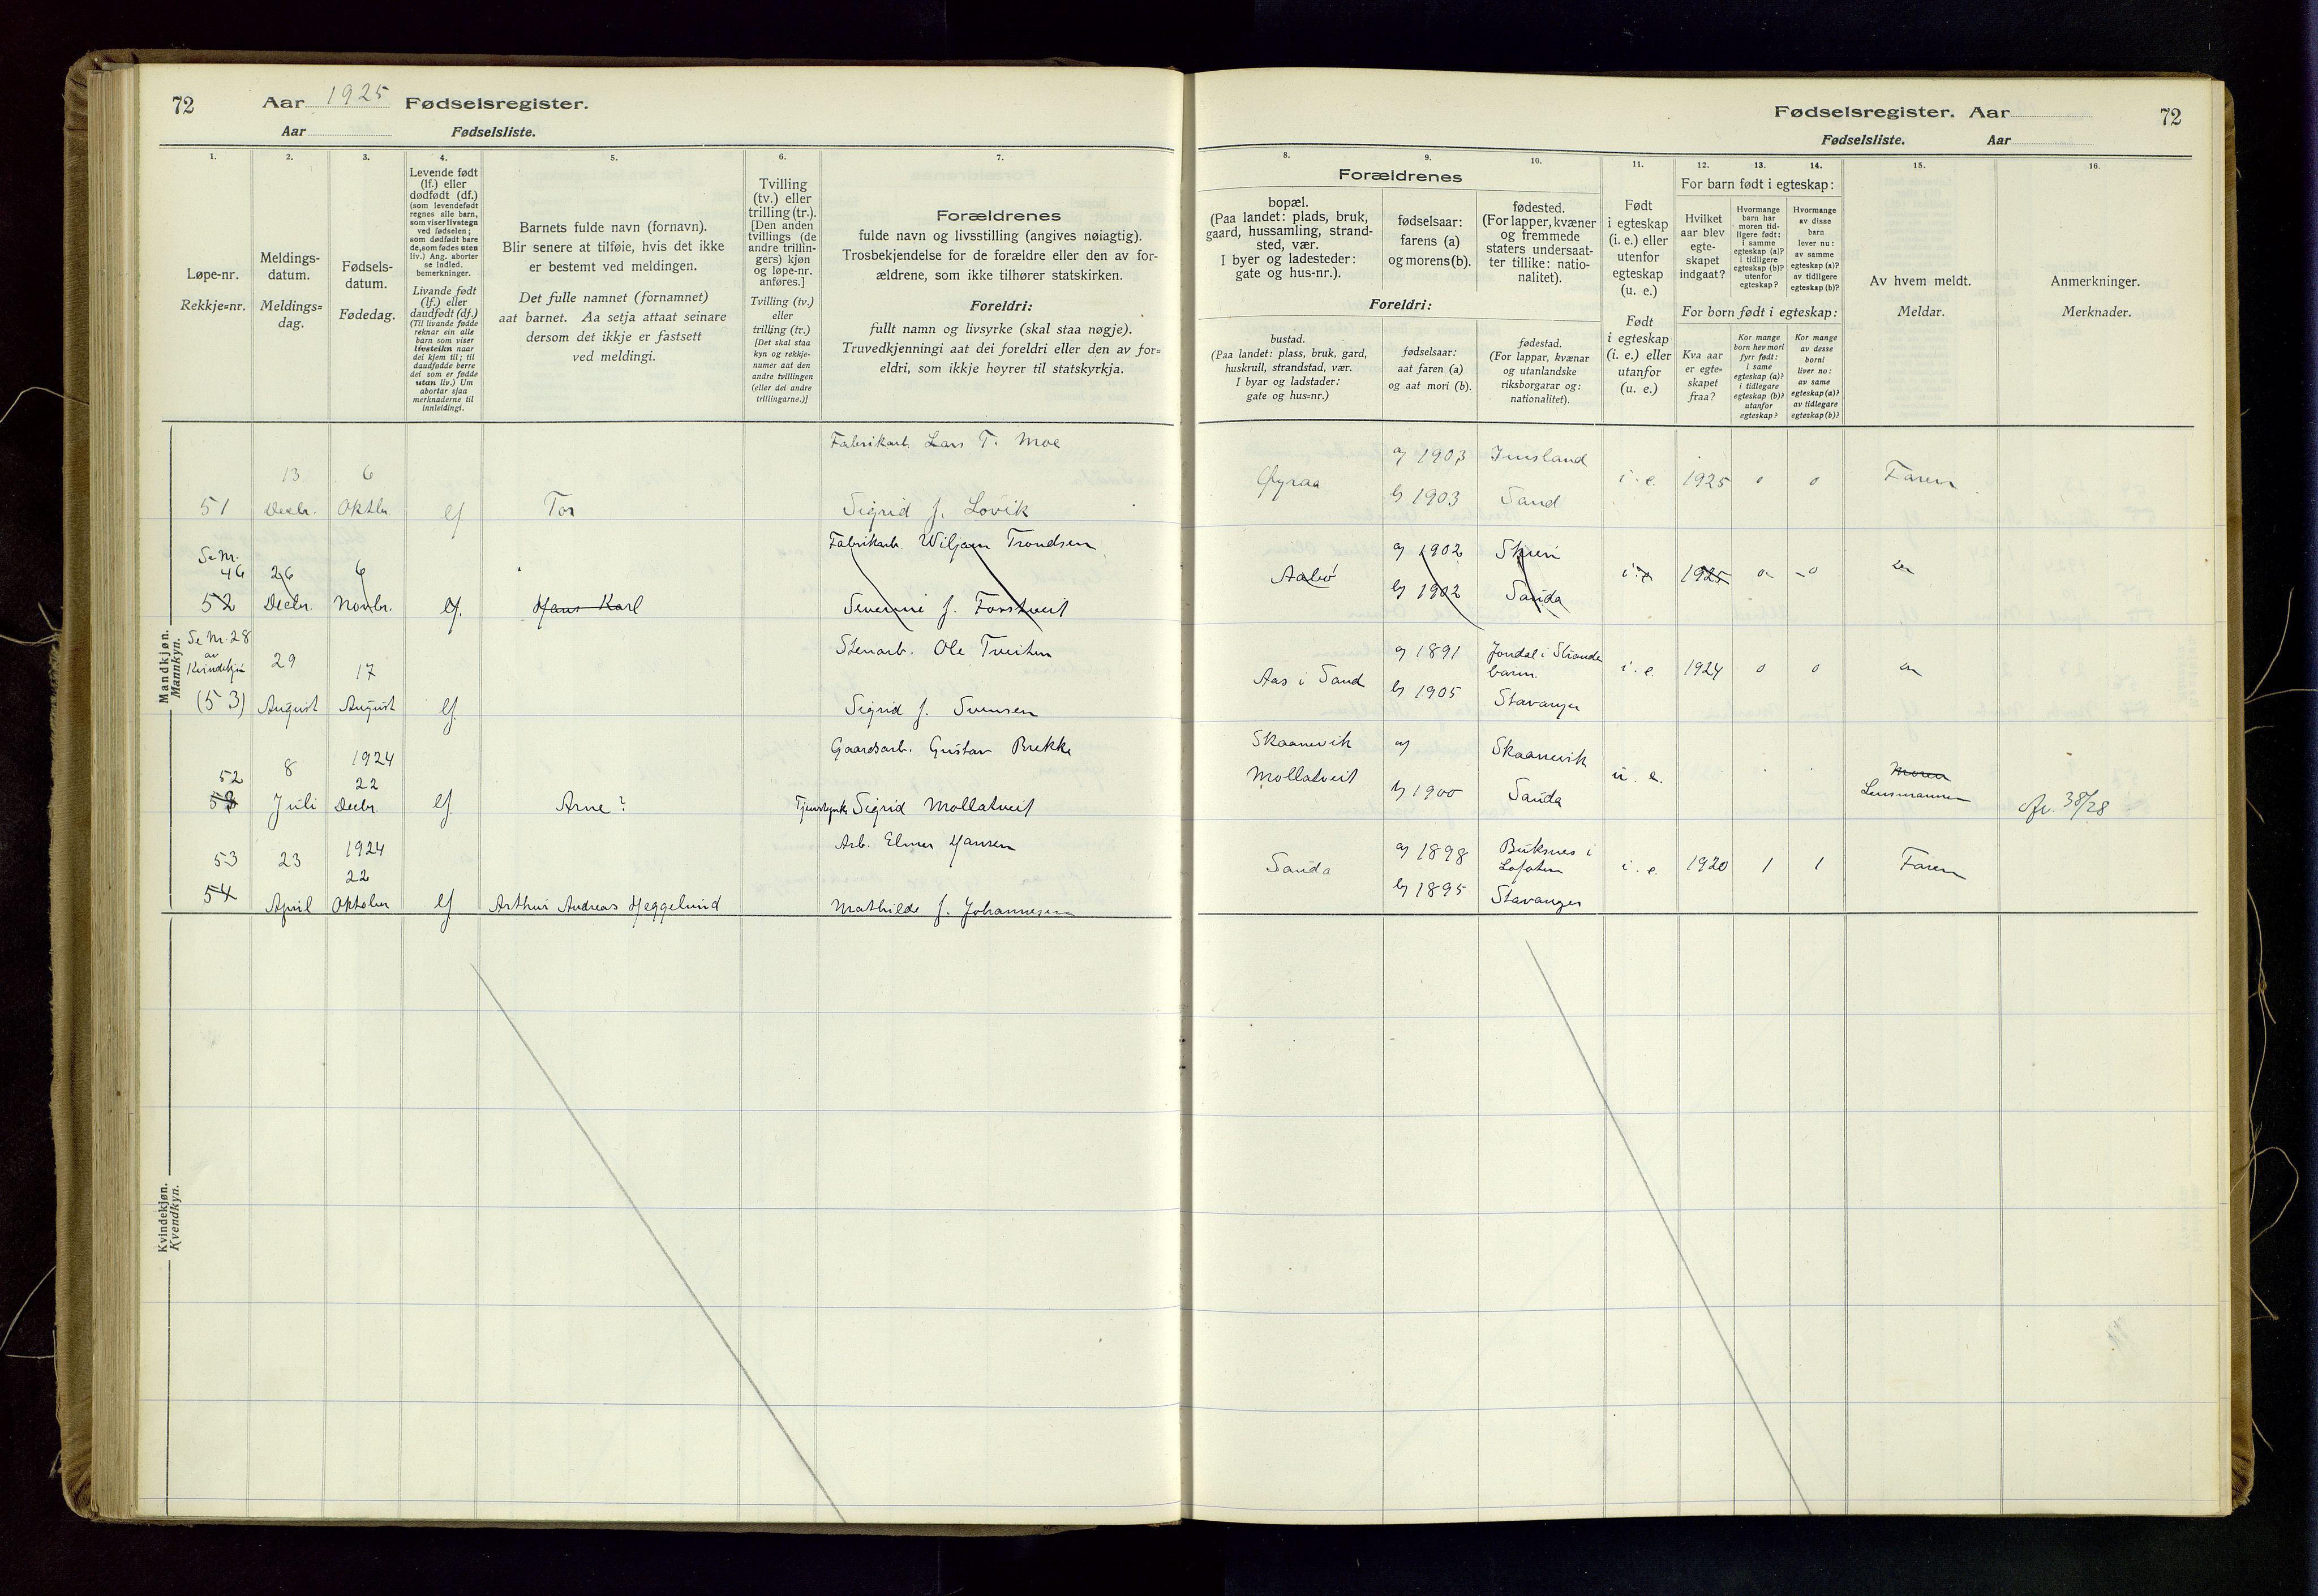 72 Aar 1925 Fødselsregister.
Aar Fødselsliste.
Fødselsregister. Aar 72
Fødselsliste. Aar
1. 2. 3. 4. 5. 6. 7.
8. 9. 10. 11. 12. 13. 14. 15. 16.
Løpe-nr.
Rekkje=nr.
Meldings-
datum.
Meldings=
dag.
Fødsels-
datum.
Fødedag.
Levende født
(lf.) eller
dødfødt (df.)
(som levendefødt
regnes alle barn,
som viser livstegn
ved fødselen;
som dødfødt bare
de, som fødes uten
liv.) Ang. aborter
se indled.
bemerkninger.
Livande født
(lf.) eller
daudfødt (df.)
(Til livande fødde
reknar ein alle
barn som viser
livsteikn naar
dei kjem til; til
daudfødde berre
dei som er fødde
utan liv.) Um
abortar sjaa
merknaderne til
innleidingi.
Barnets fulde navn (fornavn).
Blir senere at tilføie, hvis det ikke
er bestemt ved meldingen.
Det fulle namnet (fornamnet)
aat barnet. Aa setja attaat seinare
dersom det ikkje er fastsett
ved meldingi.
Tvilling
(tv.) eller
trilling (tr.).
[Den anden
tvillings (de
andre trillin-
gers) kjøn
og løpe-nr.
anføres.]
Tvilling (tv.)
eller
trilling (tr.)
[Det skal staa
kyn og rekkje-
numer aat den
andre tvillingen
(eller dei andre
trillingarne.)]
Forældrenes
fulde navn og livsstilling (angives nøiagtig).
Trosbekjendelse for de forældre eller den av for-
ældrene, som ikke tilhører statskirken.
Foreldri:
fullt namn og livsyrke (skal staa nøgje).
Truvedkjenningi aat dei foreldri eller den av for=
eldri, som ikkje høyrer til statskyrkja.
Forældrenes
bopæl.
(Paa landet: plads, bruk,
gaard, hussamling, strand-
sted, vær.
I byer og ladesteder:
gate og hus-nr.).
fødselsaar:
farens (a)
og morens (b).
fødested.
(For lapper, kvæner
og fremmede
staters undersaat-
ter tillike: natio-
nalitet).
Foreldri:
bustad.
(Paa landet: plass, bruk, gard,
huskrull, strandstad, vær.
I byar og ladstader:
gate og hus=nr.)
fødselsaar:
aat faren (a)
og aat mori (b).
fødestad.
(For lappar, kvænar
og utanlandske
riksborgarar og:
nationalitet).
Født
i egteskap
(i. e.) eller
utenfor
egteskap
(u. e.)
Født
i egteskap
(i. e.) eller
utanfor
(u. e.)
For barn født i egteskap:
Hvilket
aar blev
egte-
skapet
indgaat?
Hvormange
barn har
moren tid-
ligere født:
i samme
egteskap (a)?
i tidligere
egteskap (b)?
utenfor
egteskap?
Hvormange
av disse
barn
lever nu:
av samme
egteskap (a)?
av tidligere
egteskap (b)?
For born født i egteskap:
Kva aar
er egte=
skapet
fraa?
Kor mange
born hev mori
fyrr født:
i same
egteskap (a)?
i tidlegare
egteskap (b)?
utanfor
egteskap?
Kor mange
av desse
borni
liver no:
av same
egteskap (a)?
av tidlegare
egteskap (b)?
Av hvem meldt.
Meldar.
Anmerkninger.
Merknader.
Mandkjøn.
Mannkyn.
Fabrikarb. Lars T. Moe
51 13 Decbr. 6 Oktbr lf Tor Sigrid f. Lovik
Øyraa a) 1903 Imsland i. e. 1925 0 0 Faren
b) 1903 Sand
Se Nr. 46
Fabrikarb. Wiljam Trondsen
52 26 Decbr. 6 Novbr. lf. Hans Karl
Aabø a) 1902 i. e. 1925 0 0
b) 1902 Sauda
Se Nr. 28
av
Kvindekjøn
Stenarb. Ole Tveiten
(53) 29 August 17 August lf. Sigrid f. Svensen
Aas i Sand a) 1891 Jondal i Strande
barm. i. e. 1924 0 0
b) 1905 Stavanger
Gaardsarb. Gustav Brekke
52
53 8 Juli 1924 22 Decbr. lf Arne? Sigrid Mollatveit
Skaanevik a) Skaanevik u. e.
Mollatveit b) 1900 Sauda
Moren
Lensmannen
38/28
Arb. Elmer Hansen
53
54 23 April 1924 22 Oktober lf Arthur Andreas Heggelund Mathilde f. Johannesen
Sauda a) 1898 Buksnes i
Lofoten i. e. 1920 1 1 Faren
b) 1895 Stavanger
Kvindekjøn.
Kvendkyn.